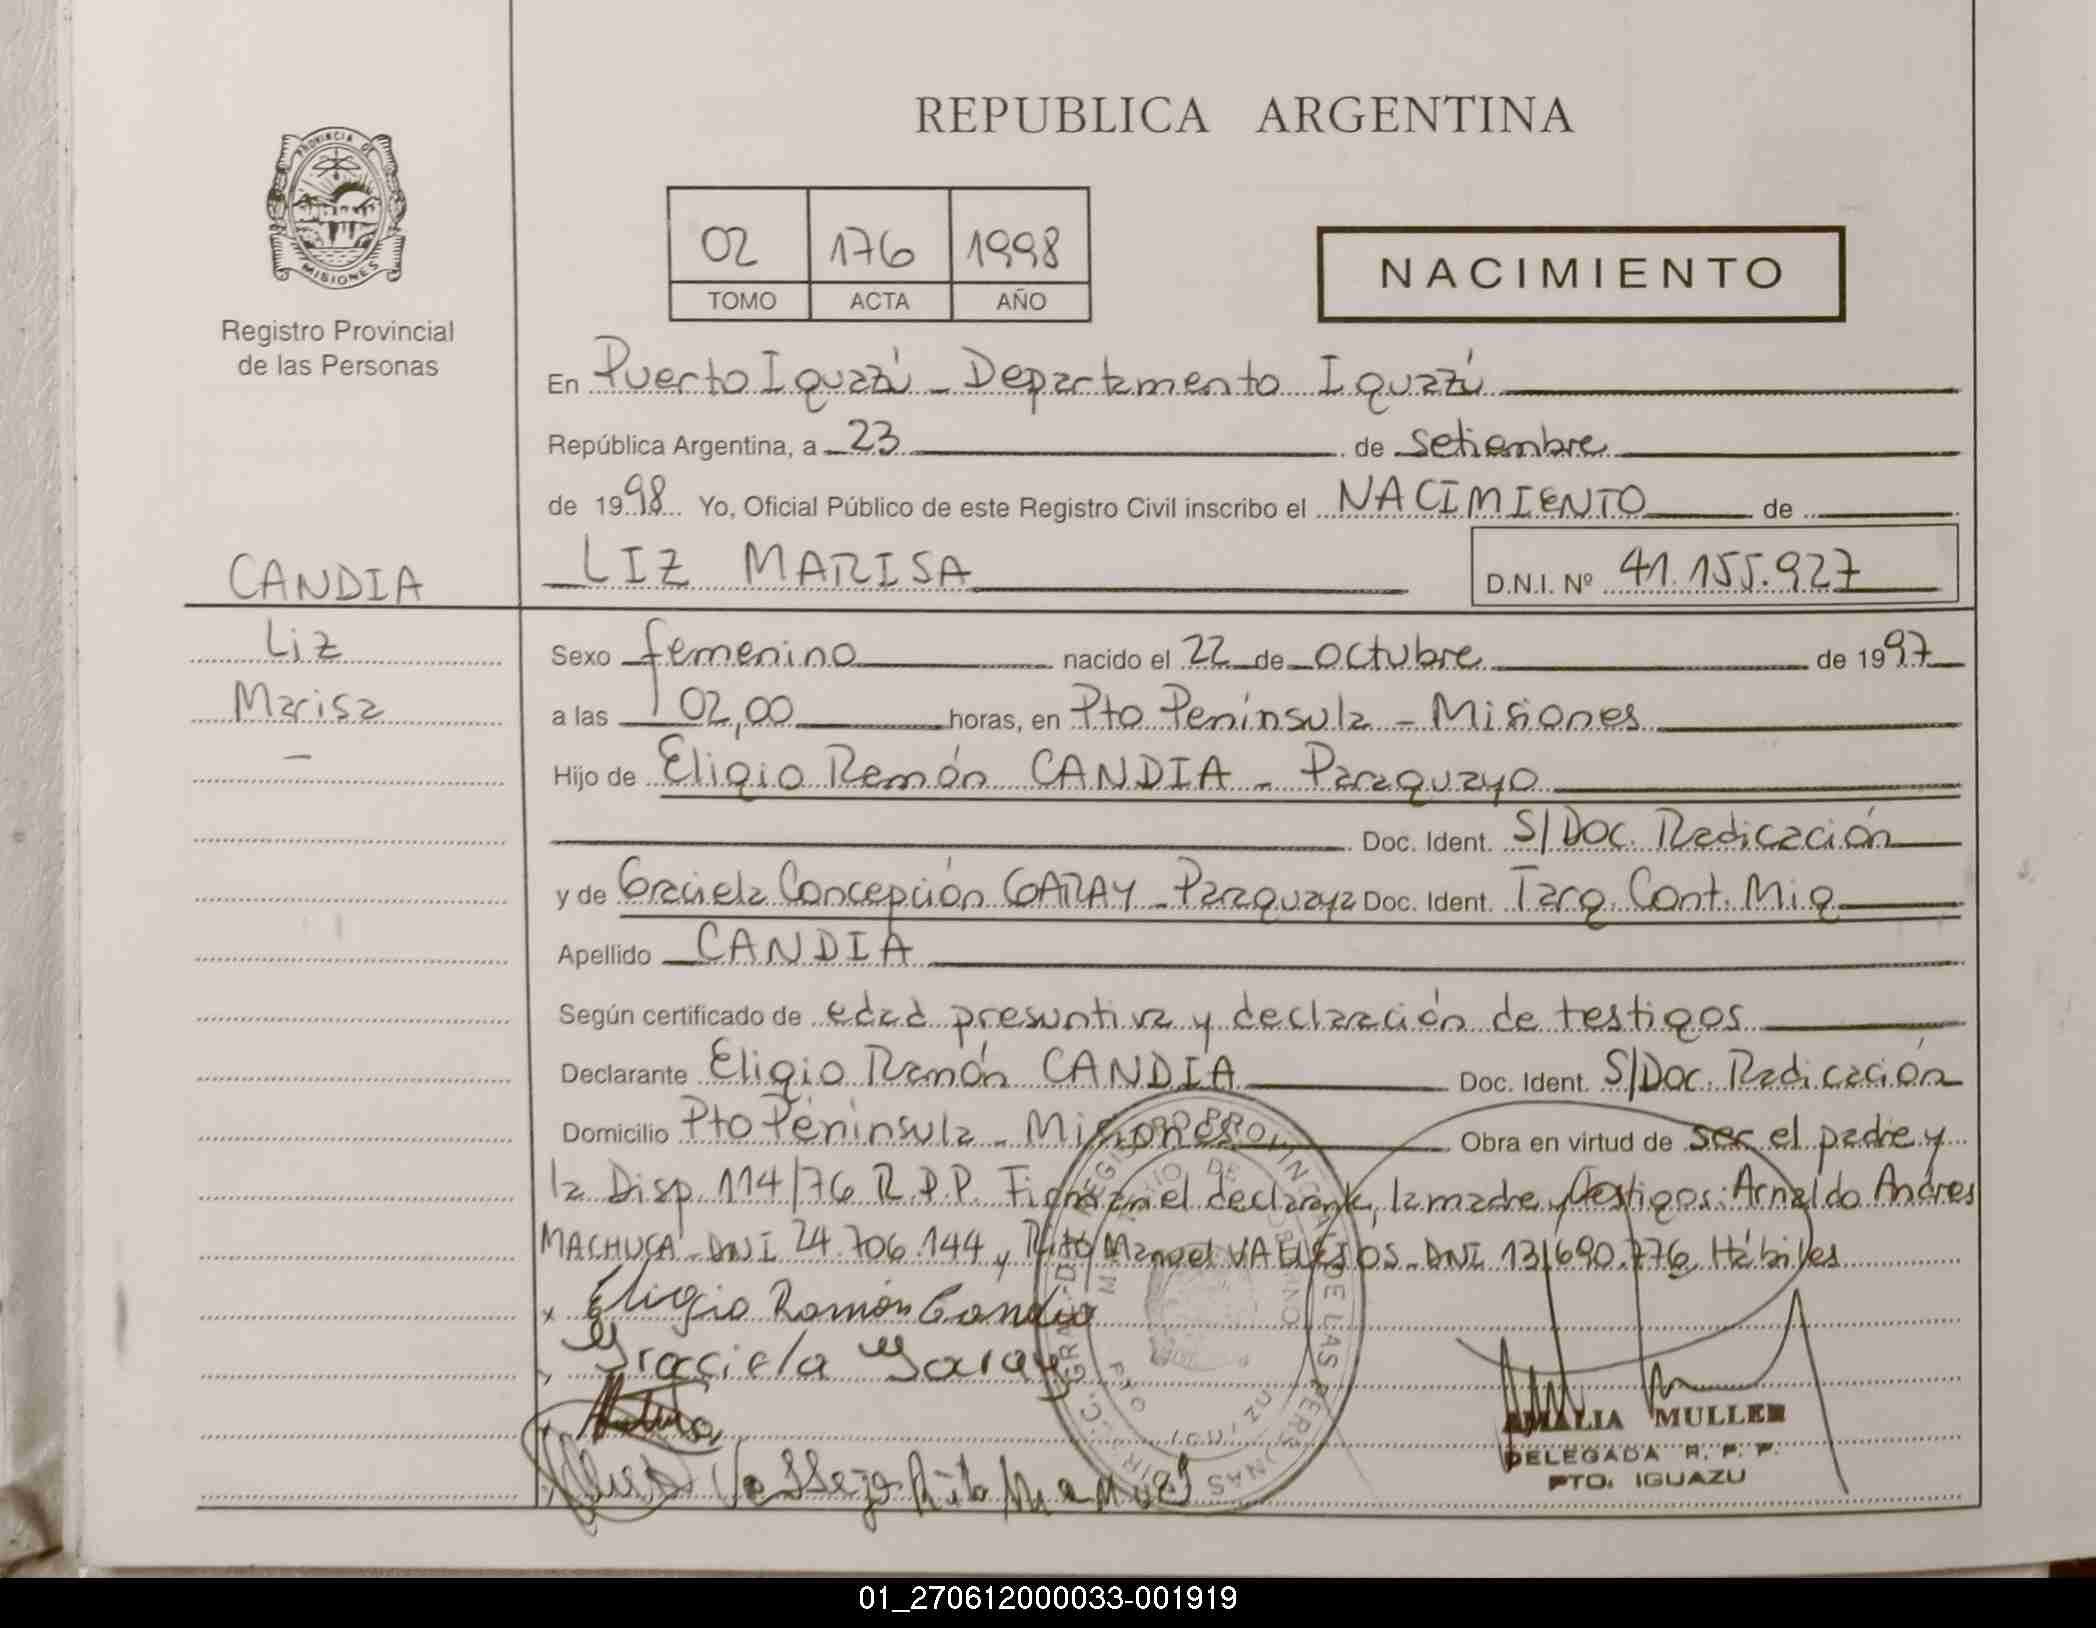 REPUBLICA ARGENTINA
PROVINCIA DE
MISIONES
02 176 1998
TOMO ACTA AÑO
NACIMIENTO
Registro Provincial
de las Personas
En Puerto Iguazú - Departamento Iguazú
República Argentina, a 23 de setiembre
de 1998 Yo, Oficial Público de este Registro Civil inscribo el NACIMIENTO de
CANDIA
LIZ MARISA D.N.I. Nº 41.155.927
Liz
Sexo femenino nacido el 22 de octubre de 1997
Marisa
a las 02,00 horas, en Pto Península - Misiones
Hijo de Eligio Ramón CANDIA - Paraguayo
Doc. Ident. S/Doc. Radicación
y de Graciela Concepción GARAY - Paraguaya Doc. Ident. Targ. Cont. Mig
Apellido CANDIA
Según certificado de edad presuntiva y declaración de testigos
Declarante Eligio Ramón CANDIA Doc. Ident. S/Doc. Radicación
Domicilio Pto Península - Misiones Obra en virtud de ser el padre y
la Disp. 114/76 R.P.P. Firman el declarante, la madre y testigos: Arnaldo Andres
MACHUCA - DNI 24.706.144 y Rito Manuel VALLEJOS - DNI 13.690.776 Hábiles
x Eligio Ramón Candia
Graciela Garay
Vallejo Rito Manuel
REGISTRO PROVINCIAL DE LAS PERSONAS
AMALIA MULLER
DELEGADA R. P. P.
PTO. IGUAZU
01_270612000033-001919